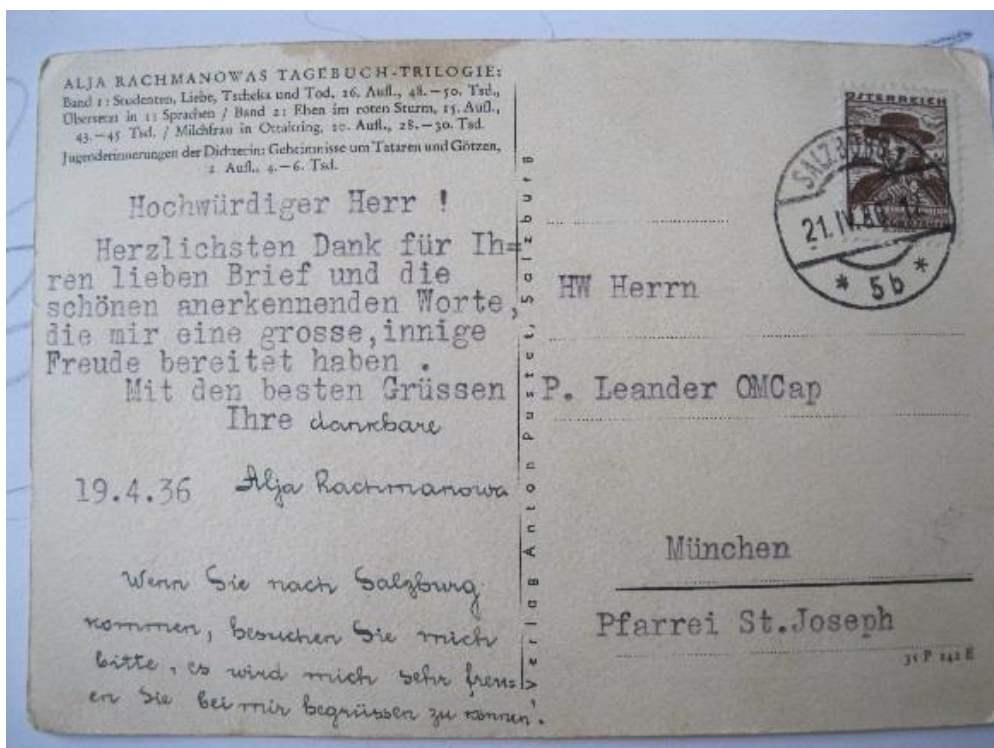 ALJA RACHMANOWAS TAGEBUCH-TRILOGIE:
Band 1: Studenten, Liebe, Tscheka und Tod, 26. Aufl., 48.—50. Tsd.,
Übersetzt in 11 Sprachen / Band 2: Ehen im roten Sturm, 15. Aufl.,
43.—45 Tsd. / Milchfrau in Ottakring, 10. Aufl., 28.—30. Tsd.
Jugenderinnerungen der Dichterin: Geheimnisse um Tataren und Götzen,
2 Aufl., 4.—6. Tsd.
Hochwürdiger Herr !
Herzlichsten Dank für Ih=
ren lieben Brief und die
schönen anerkennenden Worte,
die mir eine grosse,innige
Freude bereitet haben .
Mit den besten Grüssen
Ihre dankbare
19.4.36 Alja Rachmanowa
Wenn Sie nach Salzburg
kommen, besuchen Sie mich
bitte, es wird mich sehr freu=
en Sie bei mir begrüssen zu können!
Verlag Anton Pustet, Salzburg
ÖSTERREICH
SALZBURG
21.IV.36
* 5b *
HW Herrn
P. Leander OMCap
München
Pfarrei St.Joseph
31 P 242 E